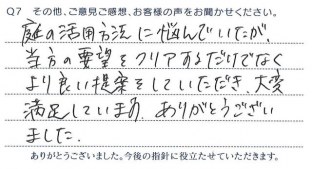 Q7 その他、ご意見ご感想、お客様の声をお聞かせください。
庭の活用方法に悩んでいたが、
当方の要望をクリアするだけでなく
より良い提案をしていただき、大変
満足しています。ありがとうござい
ました。
ありがとうございました。今後の指針に役立たせていただきます。